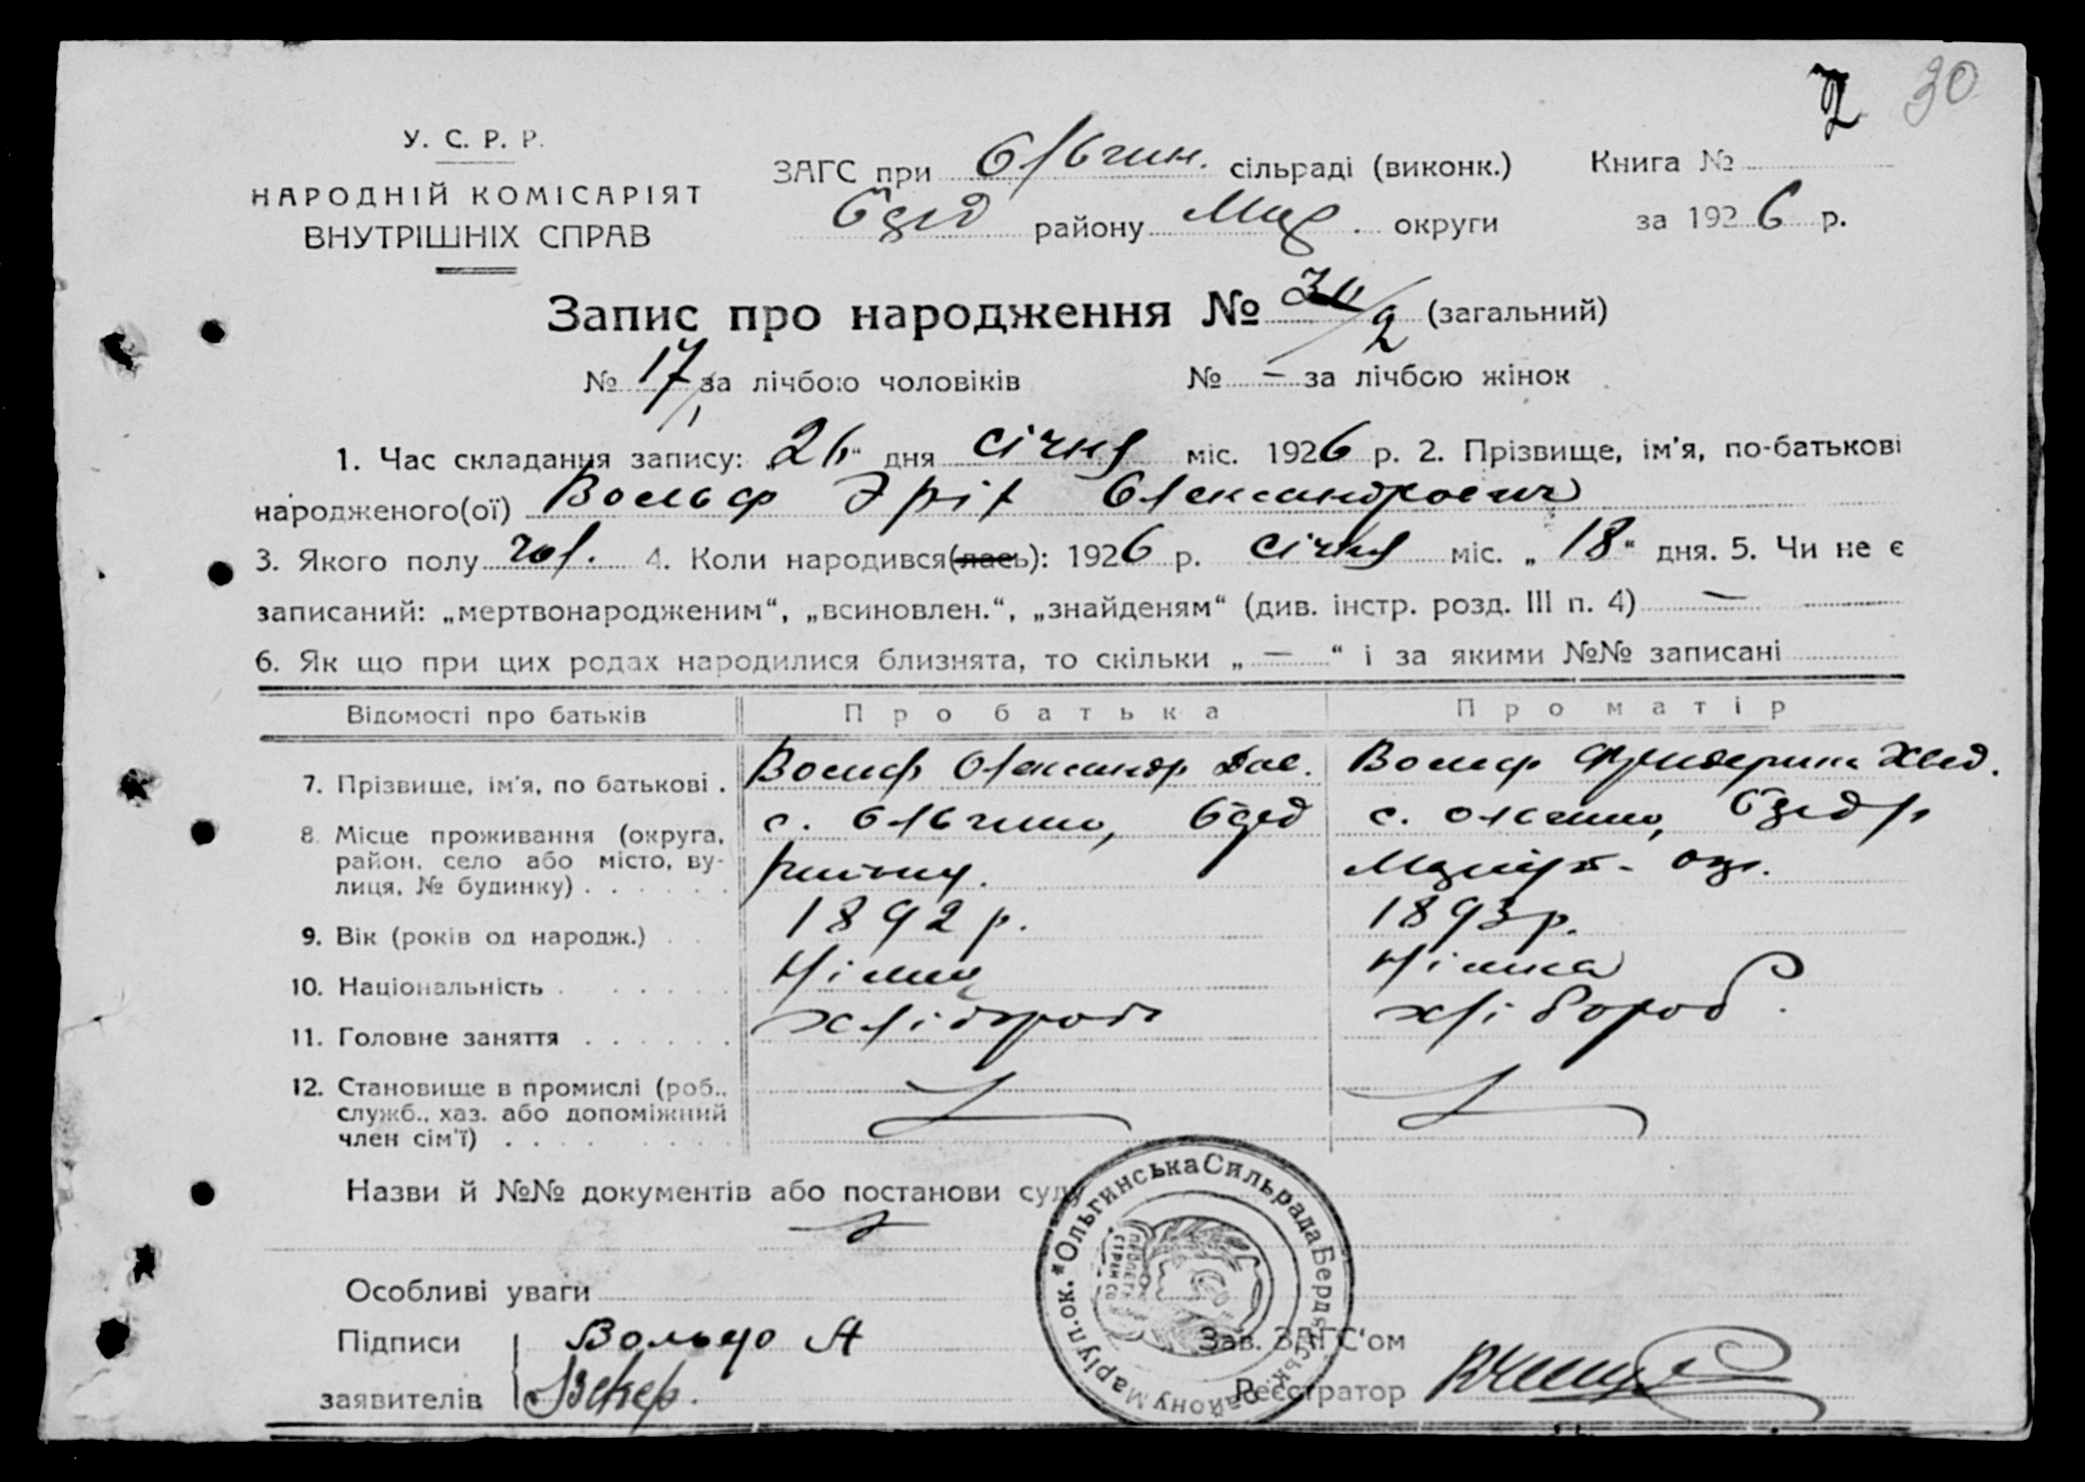 2 30
У. С. Р. Р.
НАРОДНІЙ КОМІСАРІЯТ
ВНУТРІШНІХ СПРАВ
ЗАГС при Ольгин. сільраді (виконк.) Книга №
району Мар. округи за 1926 р.
Запис про народження № 30/2 (загальний)
№ 17/1 за лічбою чоловіків № — за лічбою жінок
1. Час складання запису: „26“ дня січня міс. 1926 р. 2. Прізвище, ім'я, по-батькові
народженого(ої) Вольф Эріх Олександрович
3. Якого полу чол. 4. Коли народився(лась): 1926 р. січня міс. „18“ дня. 5. Чи не є
записаний: „мертвонародженим“, „всиновлен.“, „знайденям“ (див. інстр. розд. III п. 4) —
6. Як що при цих родах народилися близнята, то скільки „ — “ і за якими №№ записані
Відомості про батьків Про батька Про матір
7. Прізвище, ім'я, по батькові . Вольф Олександр Вольф
8. Місце проживання (округа, район, село або місто, вулиця, № будинку) с. Ольгино, району. с. Ольгино,
9. Вік (років од народж.) 1892 р. 1893 р.
10. Національність Німец Німка
11. Головне заняття хлібороб хлібороб
12. Становище в промислі (роб., служб., хаз. або допоміжний член сім'ї)
Назви й №№ документів або постанови суду
Особливі уваги
Підписи Вольф А Зав. ЗАГС'ом
заявителів Реєстратор
* Ольгинська Сильрада Бердянськ. району Маріуп. ок.